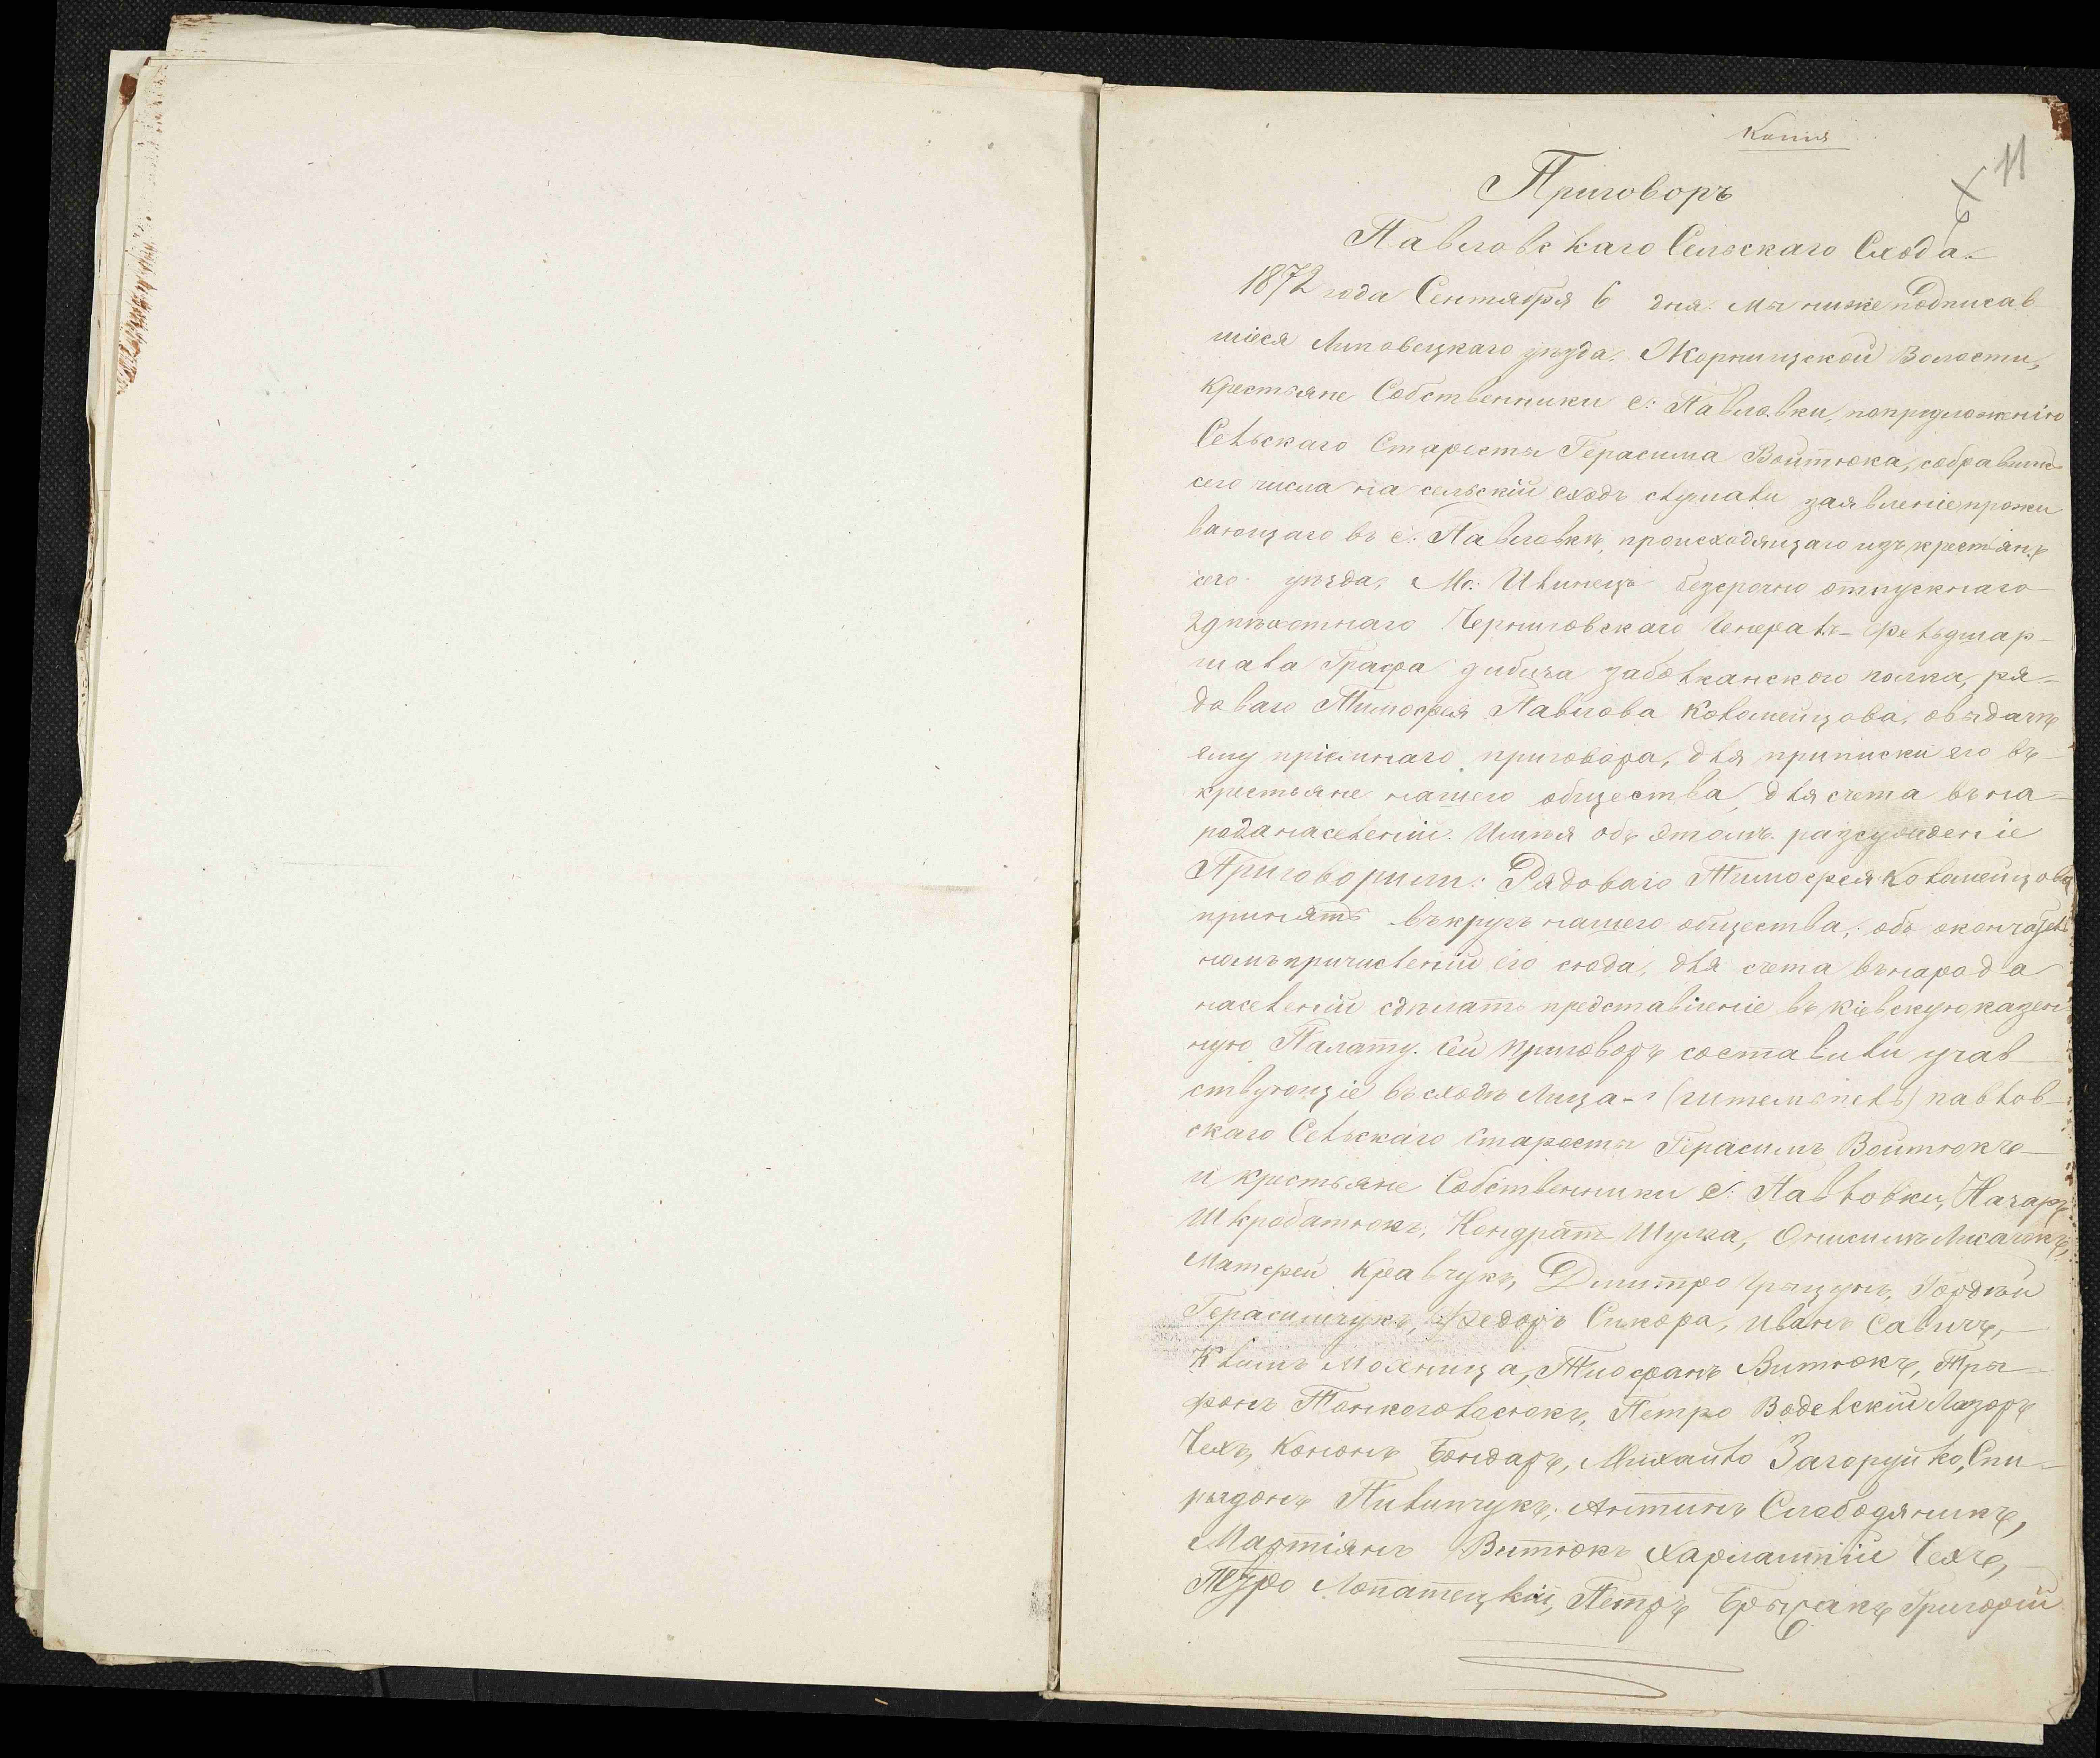 Копія
11
Приговоръ
6
Павловскаго Сельскаго Схода.
1872 года Сентября 6 дня. Мы нижеподписав
шіеся Липовецкаго уѣзда. Жорнищской Волости,
Крестьяне Собственники с: Павловки, попредложенію
Сельскаго Старосты Герасима Войтюка, собравшись
сего числа на сельскій сходъ слушали заявленіе прожи
вающаго въ с: Павловкѣ, происходящаго изъ крестьянъ
сего уѣзда, Мс: Илинецъ безсрочно отпускнаго
29 пѣхотнаго Черниговскаго Генералъ-Фельдмар-
шала Графа Дибича Заболканского полка, ря-
доваго Тимофея Павлова Коломейцова, овыдачѣ
ему пріемнаго приговора, для приписки его въ
крестьяне нашего общества, для счета вьна-
роданаселеніи. Имѣя объ этомъ разсужденіе
Приговорили: Рядоваго Тимофея Коломейцова
принять въкругъ нашего общества, объ окончатель
номъ причисленіи его сюда, для счета вънарода
населеніи сдѣлать представленіе въ Кіевскую казен
ную Палату. Сей приговоръ составили учав
ствующіе въ сходѣ Лица-: Павлов-
скаго Сельскаго Старосты Герасимъ Войтюкъ
и крестьяне Собственники с: Павловки, Назаръ
Шкробатюкъ, Кондратъ Шулга, Онисимъ Лисаюкъ,
Матфей Кравчукъ, Дмитро Грыцунъ, Гордѣй
Герасимчукъ, Федоръ Сикора, Иванъ Савичъ,
Климъ Мохница, Тиофанъ Витюкъ, Тры-
фонъ Тонкоголасюкъ, Петро Водельскій Лазоръ
Чехъ, Кононъ Бондаръ, Михайло Загоруйко, Спи-
рыдонъ Пилипчукъ, Антинъ Слободяникъ,
Мартіянъ Витюкъ Харлампій Чехъ,
Петро Лопатецкій, Петръ Грыцакъ Григорій